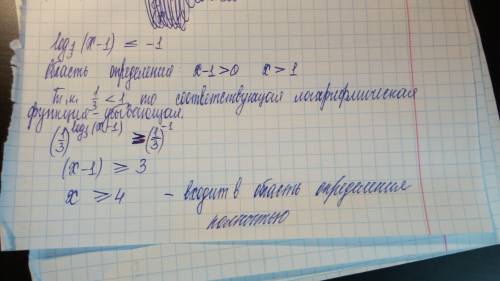 log₃ (x-1) ≤ -1
Область определения x-1>0 x>1
Т.к. 1/3 < 1, то соответствующая логарифмическая
функция - убывающая.
(1/3)^log₃(x-1) ≥ (1/3)^-1
(x-1) ≥ 3
x ≥ 4 - входит в область определения
полностью